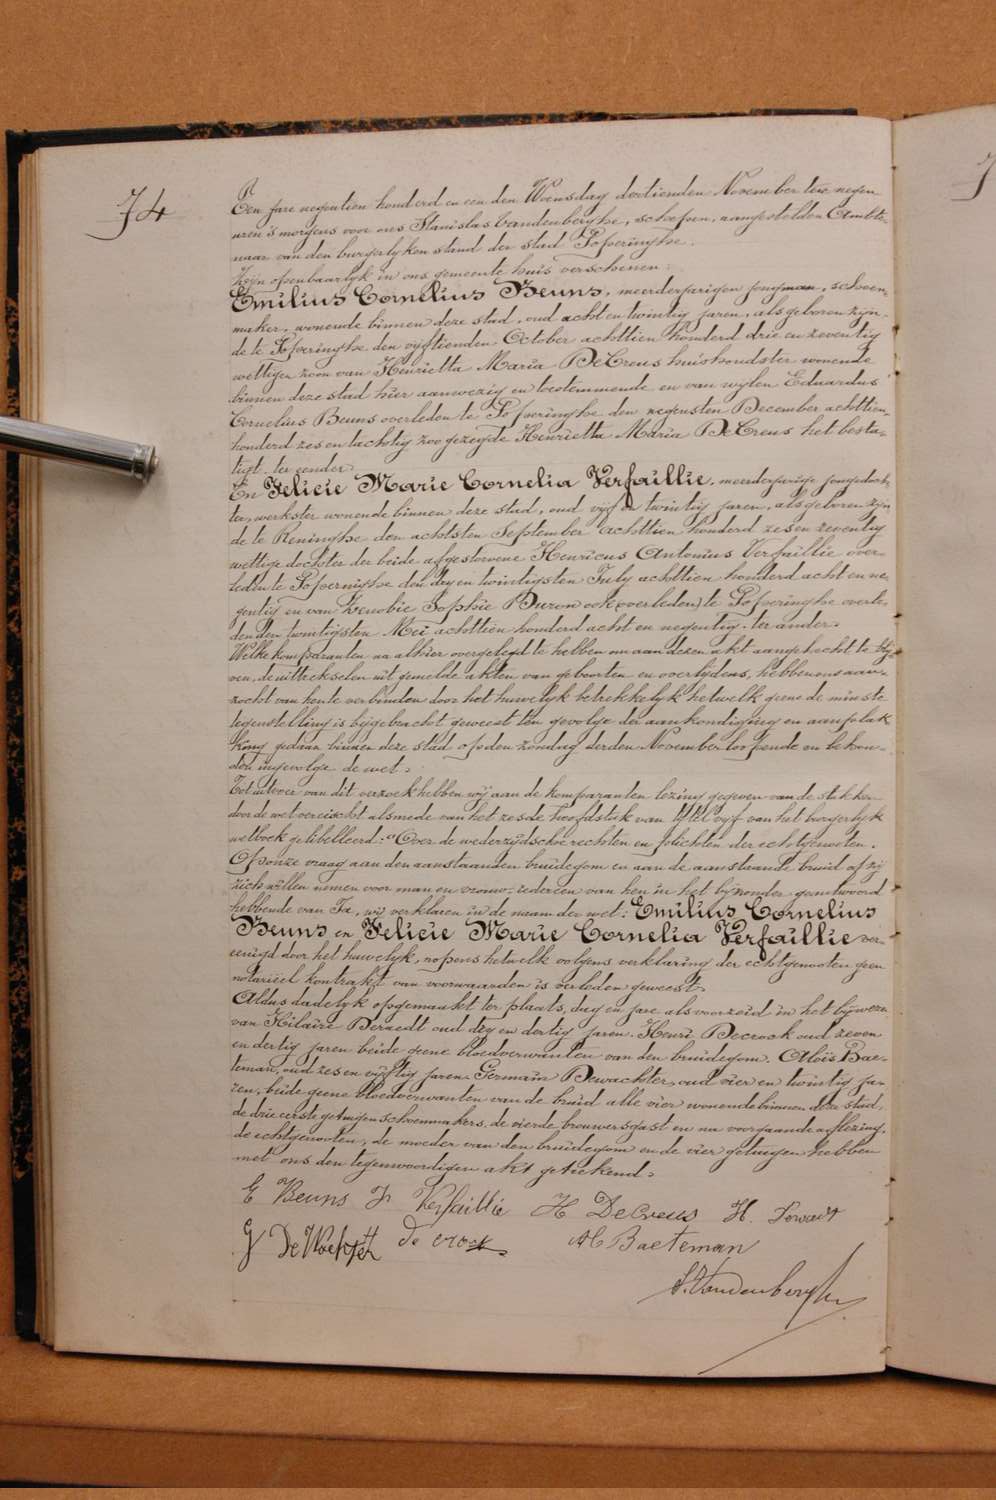 74
Een jare negentien honderd en een den Woensdag dertienden November ten negen
uren 's morgens voor ons Stanislas Vandenberghe, schepen, aangestelden Ambte-
naar van den burgerlyken stand der stad Poperinghe.
Zijn openbaarlyk in ons gemeente huis verschenen:
Emilius Cornelius Beuns, meerderjarigen jongman, schoen-
maker, wonende binnen deze stad, oud acht en twintig jaren, als geboren zyn-
de te Poperinghe den vyftienden October achttien honderd drie en zeventig
wettigen zoon van Henrietta Maria DeCreus huishoudster wonende
binnen deze stad hier aanwezig en toestemmende en van wylen Eduardus
Cornelius Beuns overleden te Poperinghe den negensten December achttien
honderd zes en tachtig zoo gezegde Henrietta Maria DeCreus het besta-
tigt. ter eender
En Felicie Marie Cornelia Verfaillie, meerderjarige jongedoch-
ter, werkster wonende binnen deze stad, oud vyf en twintig jaren, als geboren zyn
de te Reninghe den achtsten September achttien honderd zes en zeventig
wettige dochter der beide afgestorvene Henricus Antonius Verfaillie over-
leden te Poperinghe den dry en twintigsten July achttien honderd acht en ne-
gentig en van Zenobie Sophie Buron ook (overleden) te Poperinghe overle-
den den twintigsten Mei achttien honderd acht en negentig. ter ander.
Welke komparanten na alhier overgelegd te hebben om aan dezen akt aangehecht te bly-
ven, de uittrekselen uit gemelde akten van geboorten en overlijdens, hebben ons aan-
zocht van hen te verbinden door het huwelyk betrekkelyk hetwelk geene de minste
tegenstelling is bygebracht geweest ten gevolge der aankondiging en aanplak
king gedaan binnen deze stad op den zondag derden November loopende en behou-
den ingevolge de wet.
Tot uitvoer van dit verzoek hebben wy aan de komparanten lezing gegeven van de stukken
door de wet vereischt alsmede van het zesde hoofdstuk van Titel vyf van het burgerlyk
wetboek gelibelleerd: "Over de wederzydsche rechten en plichten der echtgenoten.
Op onze vraag aan den aanstaanden bruidegom en aan de aanstaande bruid of zy
zich willen nemen voor man en vrouw, iedereen van hen in het byzonder geantwoord
hebbende van Ja, wy verklaren in de naam der wet: Emilius Cornelius
Beuns en Felicie Marie Cornelia Verfaillie ver-
eenigd door het huwelyk, nopens hetwelk volgens verklaring der echtgenooten geen
notariëel kontrakt van voorwaarden is verleden geweest.
Aldus dadelyk opgemaakt ter plaats, dag en jare als voorzeid in het bywezen
van Hilaire Deraedt oud dry en dertig jaren. Henri Decrock oud zeven
en dertig jaren beide geene bloedverwanten van den bruidegom. Aloïs Bae-
teman, oud zes en vyftig jaren. Germain Dewachter, oud vier en twintig ja-
ren, beide geene bloedverwanten van de bruid alle vier wonende binnen deze stad,
de drie eerste getuigen schoenmakers, de vierde brouwersgast en na voorgaande aflezing.
de echtgenooten, de moeder van den bruidegom en de vier getuigen hebben
met ons den tegenwoordigen akt geteekend.
E Beuns F Verfaillie H DeCreus H.
G DeWachter de crock Baeteman
S. Vandenberghe